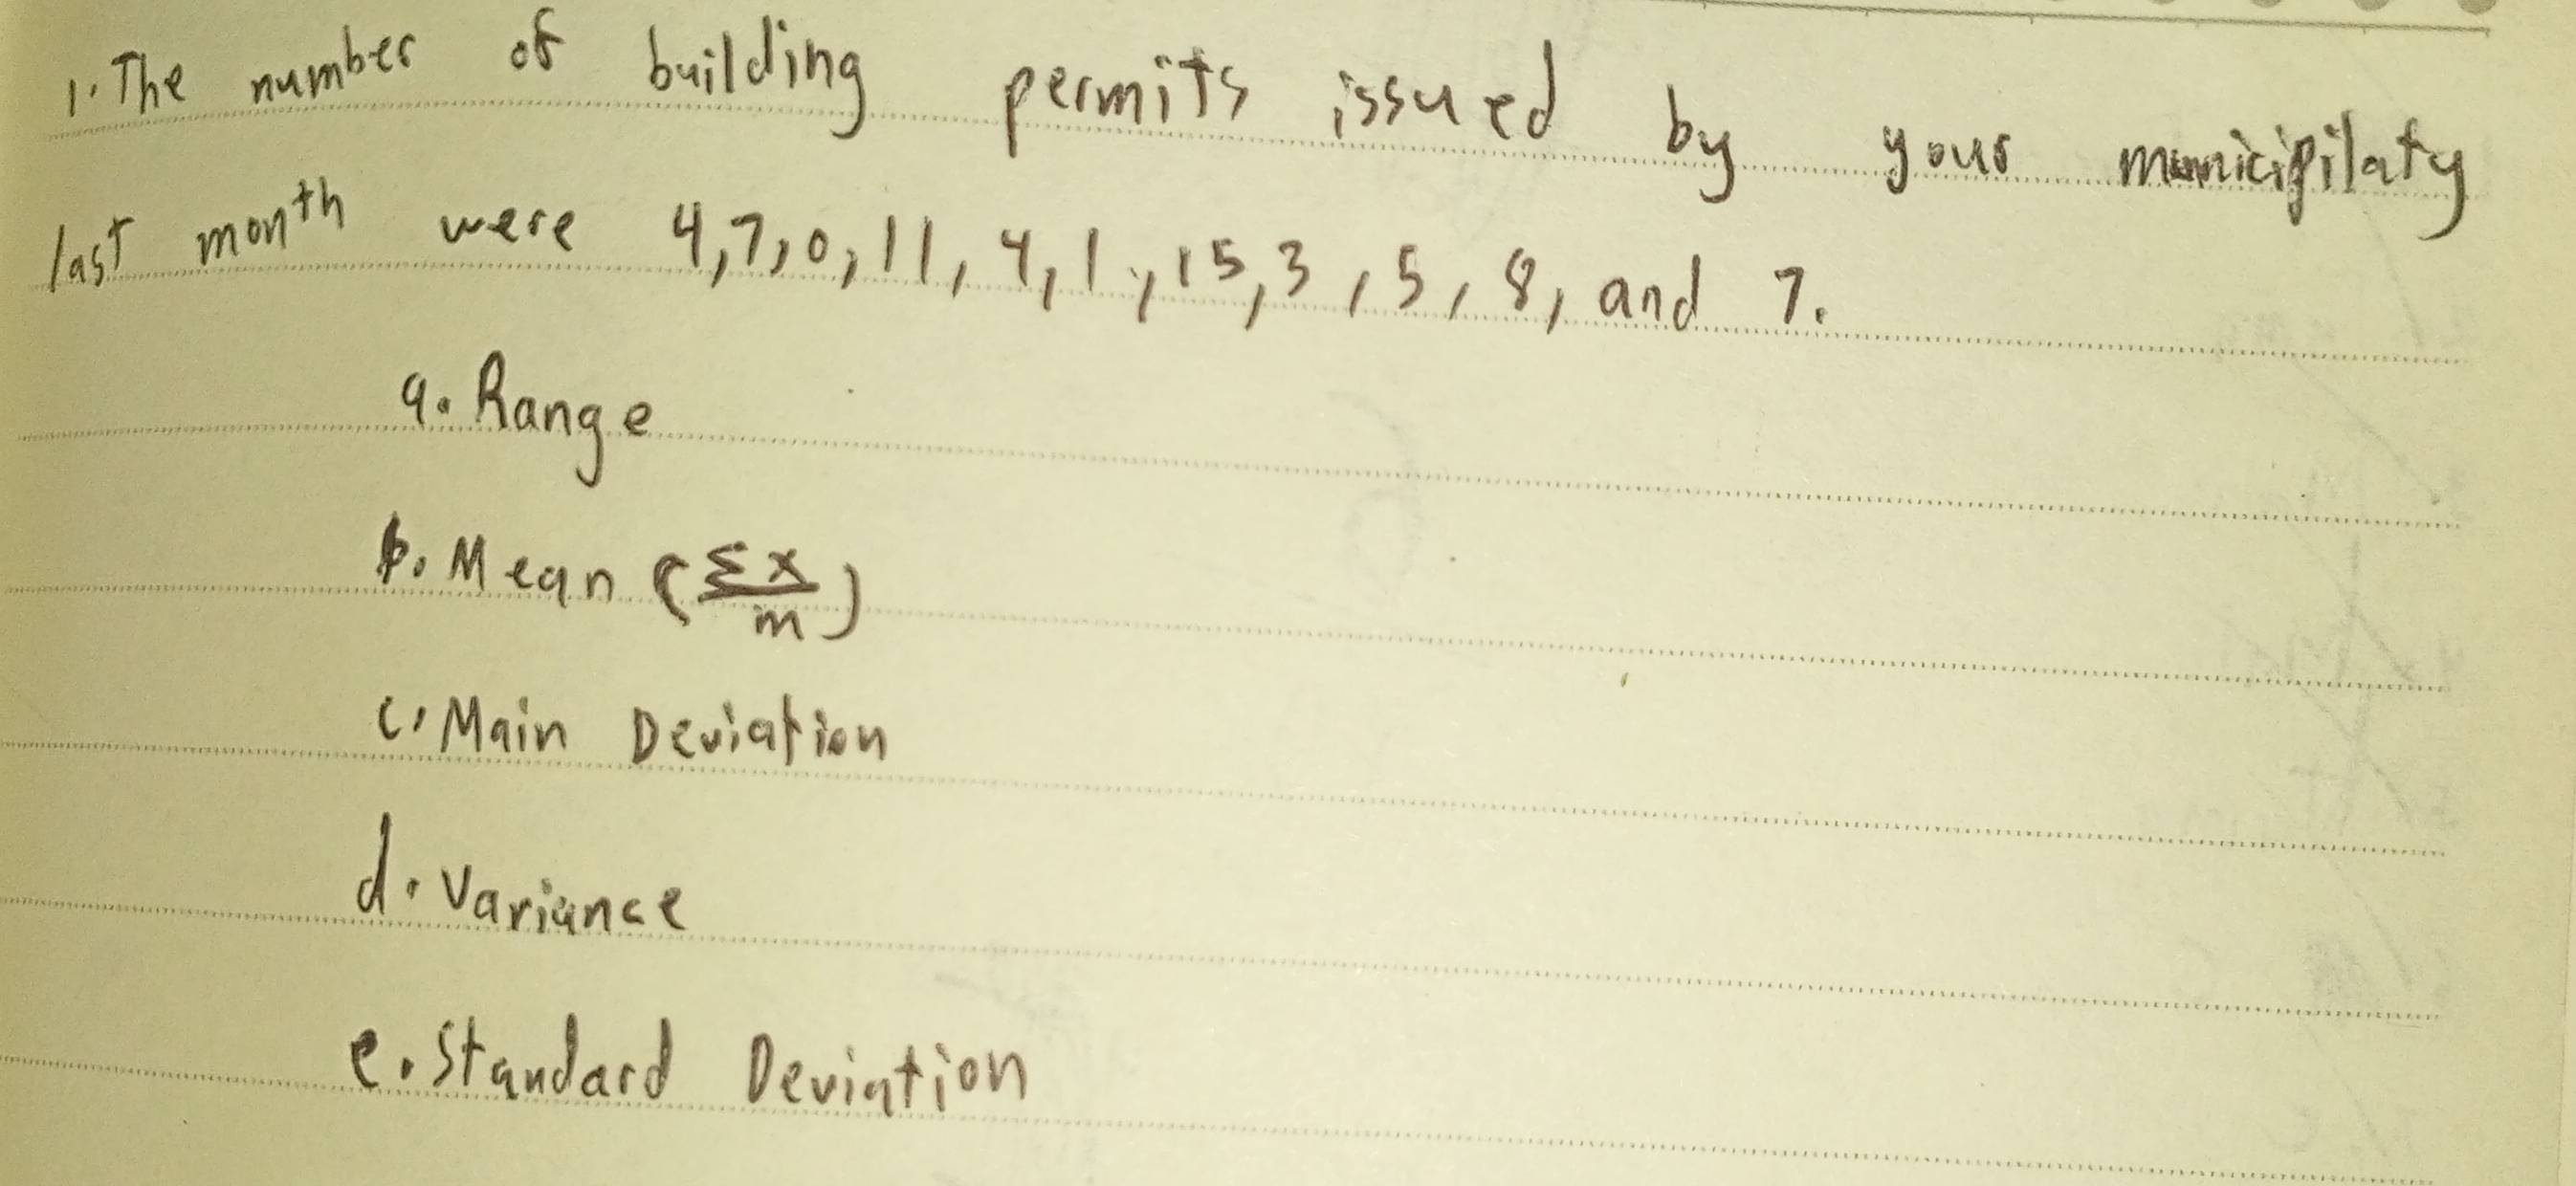 1. The number of building permits issued by your municipilaty
last month were 4, 7, 0, 11, 4, 1, 15, 3, 5, 8, and 7.
a. Range
b. Mean (Σx/m)
c. Main Deviation
d. Variance
e. Standard Deviation